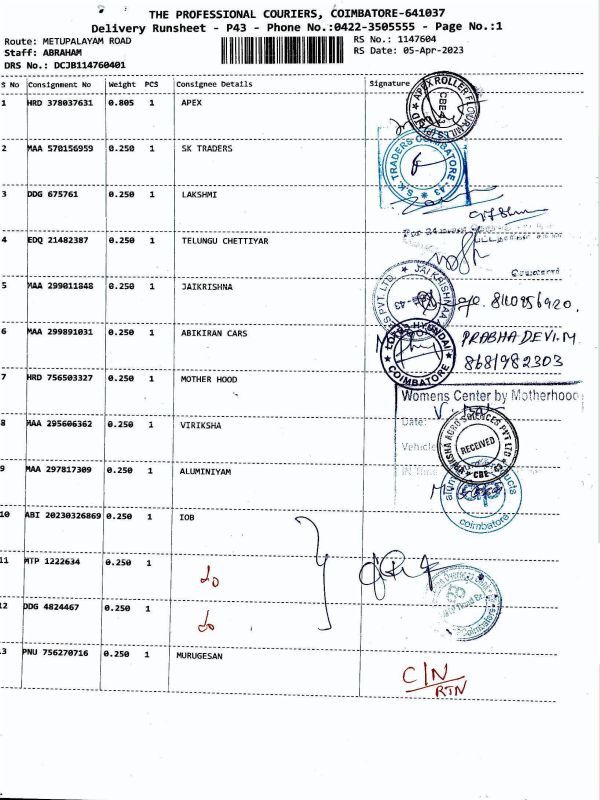 THE PROFESSIONAL COURIERS, COIMBATORE-641037
Delivery Runsheet - P43 - Phone No.:0422-3505555 - Page No.:1
Route: METUPALAYAM ROAD RS No.: 1147604
Staff: ABRAHAM RS Date: 05-Apr-2023
DRS No.: DCJB114760401
S No Consignment No Weight PCS Consignee Details Signature
1 HRD 378037631 0.805 1 APEX
APEX ROLLER FLOUR MILLS (P) LTD CBE-43
2 MAA 570156959 0.250 1 SK TRADERS
S.K TRADERS COIMBATORE -43
3 DDG 675761 0.250 1 LAKSHMI
4 EDQ 21482387 0.250 1 TELUNGU CHETTIYAR
5 MAA 299011848 0.250 1 JAIKRISHNA
JAI KRISHNAA
PVT LTD
8110956920.
6 MAA 299891031 0.250 1 ABIKIRAN CARS
LOTUS HYUNDAI COIMBATORE
PRABHA DEVI.M
8681982303
7 HRD 756503327 0.250 1 MOTHER HOOD
Womens Center by Motherhood
Date:
Vehicle
8 MAA 295606362 0.250 1 VIRIKSHA
AGRO SCIENCES PVT LTD
RECEIVED
CBE - 43
9 MAA 297817309 0.250 1 ALUMINIYAM
coimbatore
10 ABI 20230326869 0.250 1 IOB
11 MTP 1222634 0.250 1 do
12 DDG 4824467 0.250 1 do
13 PNU 756270716 0.250 1 MURUGESAN
C/N
RTN